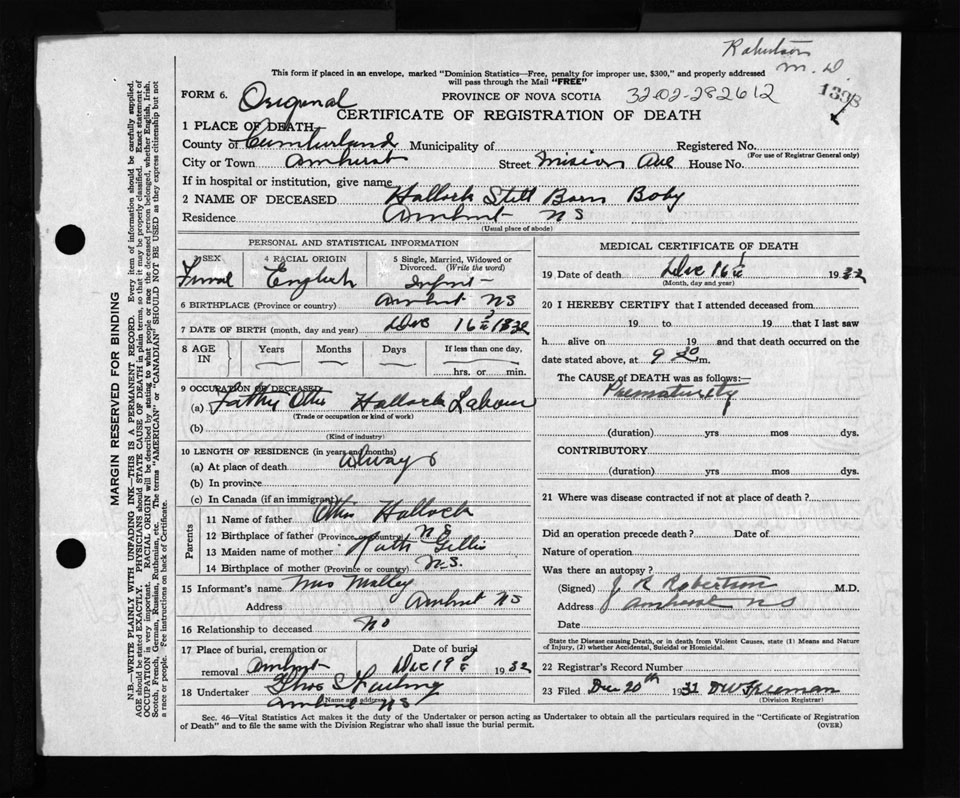 Robertson
M. D.
This form if placed in an envelope, marked "Dominion Statistics—Free, penalty for improper use, $300," and properly addressed
will pass through the Mail "FREE"
1338
FORM 6. Original PROVINCE OF NOVA SCOTIA 32-02-282612
CERTIFICATE OF REGISTRATION OF DEATH
1 PLACE OF DEATH
County of Cumberland Municipality of Registered No.
(For use of Registrar General only)
City or Town Amherst Street Mision Ave House No.
If in hospital or institution, give name
2 NAME OF DECEASED Hallock Still Born Baby
Residence Amherst NS
(Usual place of abode)
PERSONAL AND STATISTICAL INFORMATION
SEX 4 RACIAL ORIGIN 5 Single, Married, Widowed or
Divorced. (Write the word)
English Infant
6 BIRTHPLACE (Province or country) Amherst NS
7 DATE OF BIRTH (month, day and year) Dec 16 1932
8 AGE IN Years Months Days If less than one day,
hrs. or min.
9 OCCUPATION OF DECEASED
(a) Father Otis Hallock Labour
(Trade or occupation or kind of work)
(b)
(Kind of industry)
10 LENGTH OF RESIDENCE (in years and months)
(a) At place of death always
(b) In province
(c) In Canada (if an immigrant)
Parents
11 Name of father Otis Hallock
12 Birthplace of father (Province or country) N S
13 Maiden name of mother Ruth Gillis
14 Birthplace of mother (Province or country) N.S.
15 Informant's name Mrs Malley
Address Amherst NS
16 Relationship to deceased no
17 Place of burial, cremation or Date of burial
removal Amherst Dec 19 1932
18 Undertaker Thos
Name and address
Amherst NS
MEDICAL CERTIFICATE OF DEATH
19 Date of death Dec 16 1932
(Month, day and year)
20 I HEREBY CERTIFY that I attended deceased from
19 to 19 that I last saw
h alive on 19 and that death occurred on the
date stated above, at 9 30 m.
The CAUSE OF DEATH was as follows:—
Prematurity
(duration) yrs mos dys.
CONTRIBUTORY
(duration) yrs mos dys.
21 Where was disease contracted if not at place of death?
Did an operation precede death? Date of
Nature of operation
Was there an autopsy?
(Signed) J R Robertson M.D.
Address Amherst NS
Date
State the Disease causing Death, or in death from Violent Causes, state (1) Means and Nature
of Injury, (2) whether Accidental, Suicidal or Homicidal.
22 Registrar's Record Number
23 Filed Dec 20th 1932
(Division Registrar)
Sec. 46—Vital Statistics Act makes it the duty of the Undertaker or person acting as Undertaker to obtain all the particulars required in the "Certificate of Registration
of Death" and to file the same with the Division Registrar who shall issue the burial permit. (OVER)
MARGIN RESERVED FOR BINDING
N.B.—WRITE PLAINLY WITH UNFADING INK—THIS IS A PERMANENT RECORD. Every item of information should be carefully supplied.
AGE should be stated EXACTLY. PHYSICIANS should STATE CAUSE OF DEATH in plain terms, so that it may be properly classified. Exact statement of
OCCUPATION is very important. RACIAL ORIGIN will be described by stating to what people or race the deceased person belonged, whether English, Irish,
Scotch, French, German, Russian, Ruthenian, etc. The terms "AMERICAN" or "CANADIAN" SHOULD NOT BE USED as they express citizenship but not
a race or people. See instructions on back of Certificate.